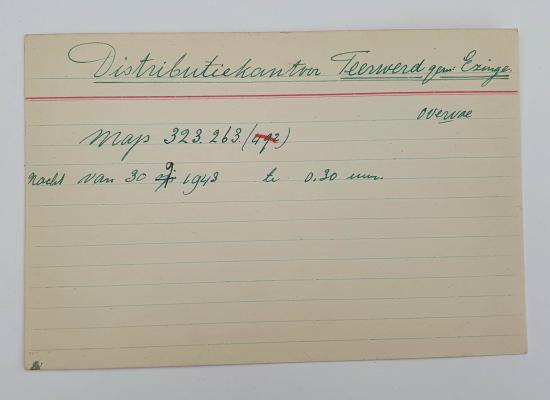 Distributiekantoor Teerwerd gem: Ezinge.
Overval
Map 323.263.(492)
Nacht van 30 9. 1943 te 0.30 uur.